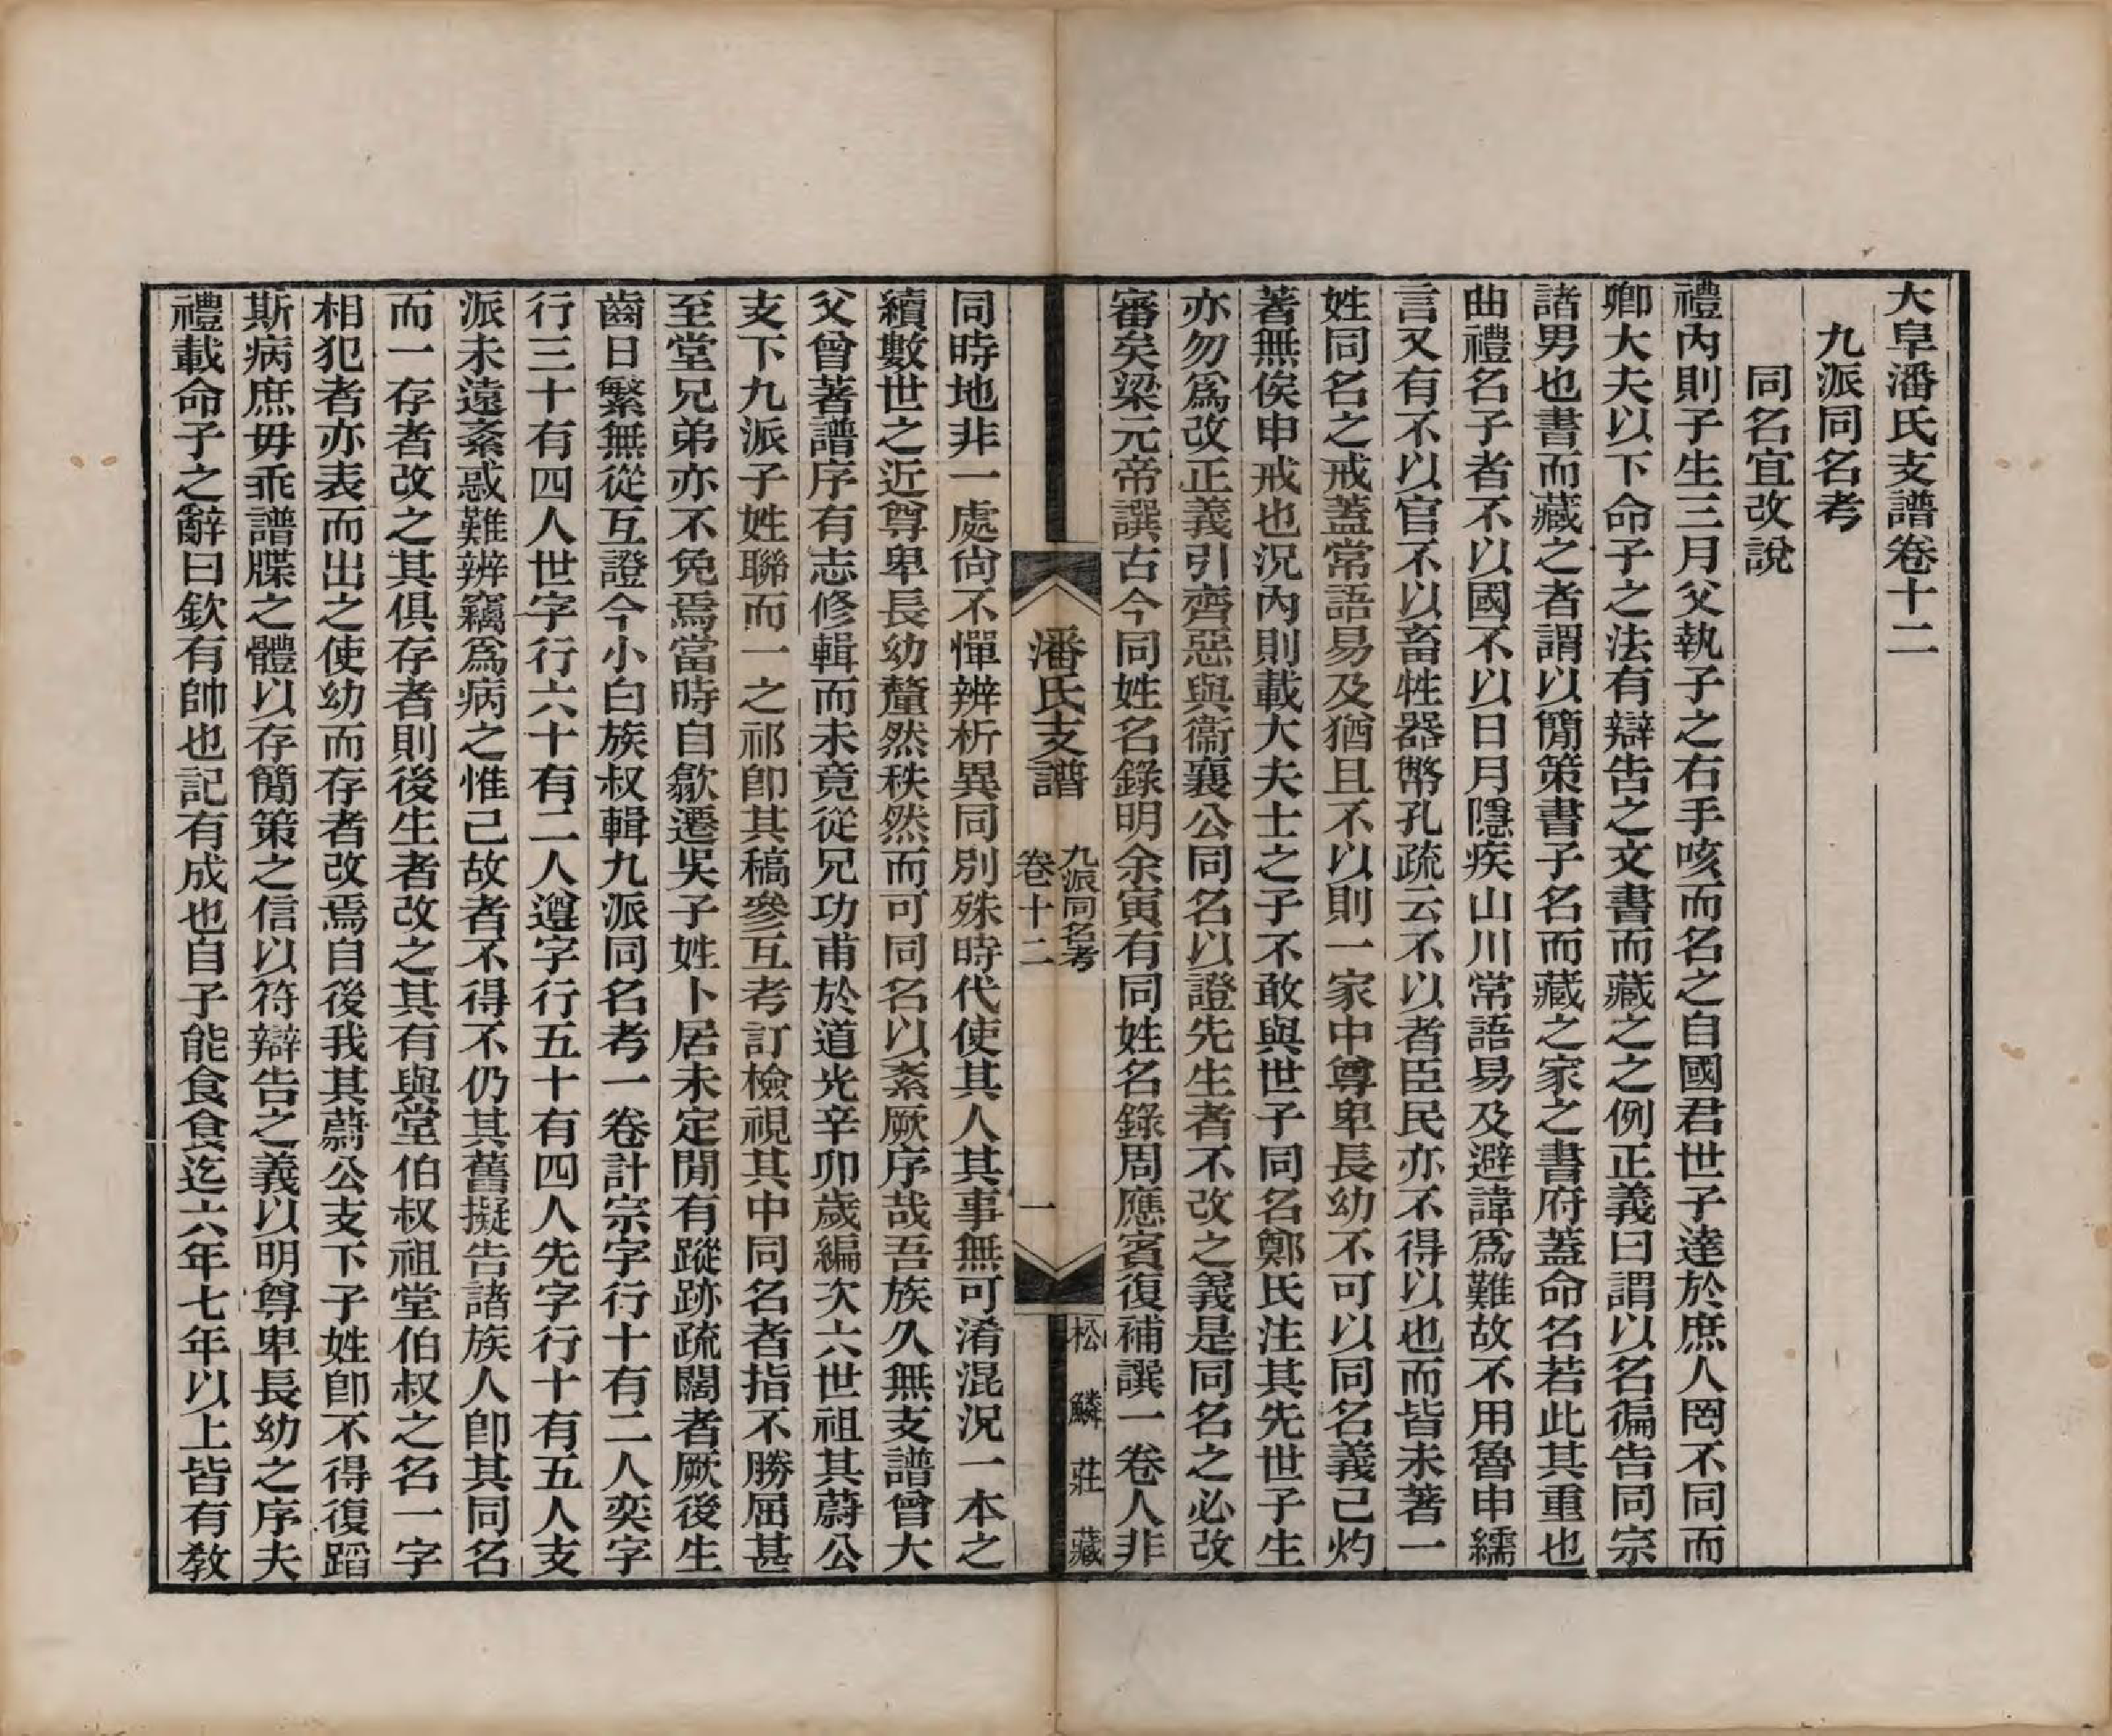 大阜潘氏支譜卷十二
九派同名考
同名宜改說
禮內則子生三月父執子之右手咳而名之自國君世子達於庶人罔不同而
卿大夫以下命子之法有辯告之文書而藏之之例正義曰謂以名徧告同宗
諸男也書而藏之者謂以簡策書子名而藏之家之書府蓋命名若此其重也
曲禮名子者不以國不以日月隱疾山川常語易及避諱爲難故不用魯申繻
言又有不以官不以畜牲器幣孔疏云不以者臣民亦不得以也而皆未著一
姓同名之戒蓋常語易及猶且不以則一家中尊卑長幼不可以同名義己灼
著無俟申戒也況內則載大夫士之子不敢與世子同名鄭氏注其先世子生
亦勿爲改正義引齊惡與衞襄公同名以證先生者不改之義是同名之必改
審矣梁元帝譔古今同姓名錄明余寅有同姓名錄周應賓復補譔一卷人非
潘氏支譜
九派同名考
卷十二
一
松鱗莊藏
同時地非一處尙不憚辨析異同別殊時代使其人其事無可淆混況一本之
續數世之近尊卑長幼釐然秩然而可同名以紊厥序哉吾族久無支譜曾大
父曾著譜序有志修輯而未竟從兄功甫於道光辛卯歲編次六世祖其蔚公
支下九派子姓聯而一之祁卽其稿參互考訂檢視其中同名者指不勝屈甚
至堂兄弟亦不免焉當時自歙遷吳子姓卜居未定閒有蹤跡疏闊者厥後生
齒日繁無從互證今小白族叔輯九派同名考一卷計宗字行十有二人奕字
行三十有四人世字行六十有二人遵字行五十有四人先字行十有五人支
派未遠紊惑難辨竊爲病之惟己故者不得不仍其舊擬告諸族人卽其同名
而一存者改之其俱存者則後生者改之其有與堂伯叔祖堂伯叔之名一字
相犯者亦表而出之使幼而存者改焉自後我其蔚公支下子姓卽不得復蹈
斯病庶毋乖譜牒之體以存簡策之信以符辯告之義以明尊卑長幼之序夫
禮載命子之辭曰欽有帥也記有成也自子能食食迄六年七年以上皆有教